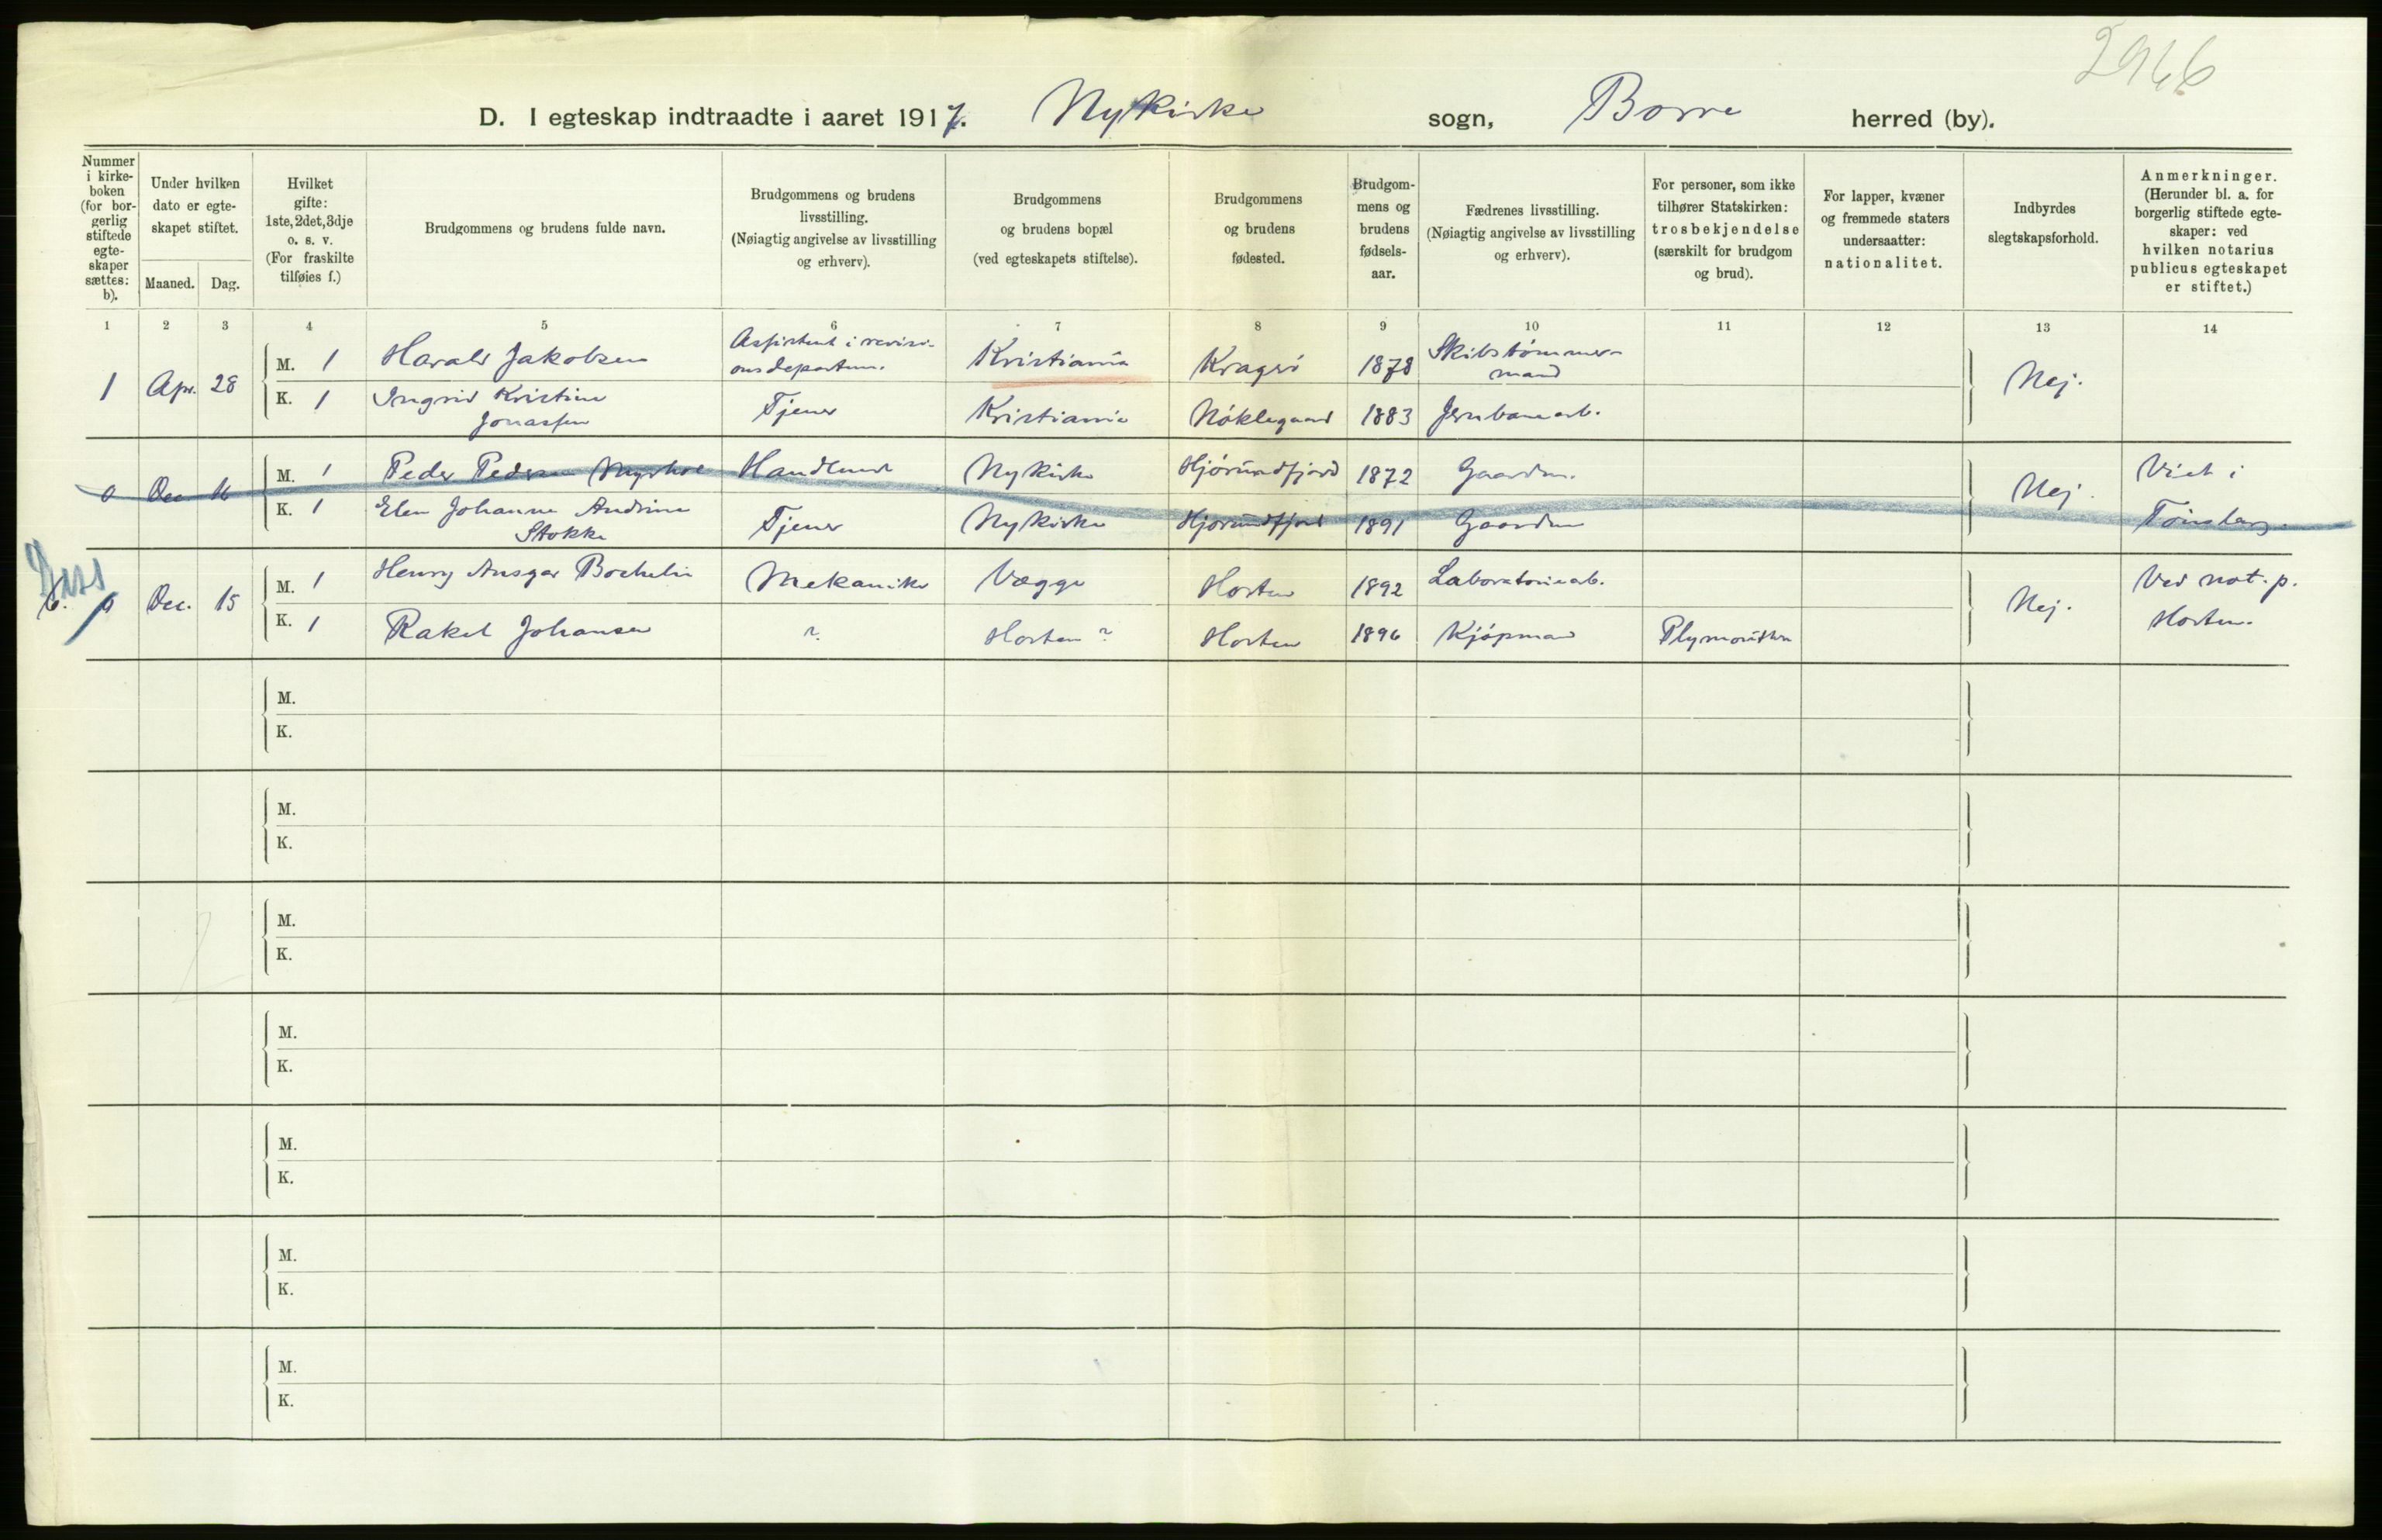 2966
D. I egteskap indtraadte i aaret 1917. Nykirke sogn, Borre herred (by).
Nummer i kirke-boken (for bor-gerlig stiftede egte-skaper sættes: b).
Under hvilken dato er egte-skapet stiftet.
Maaned. Dag.
Hvilket gifte: 1ste, 2det, 3dje o. s. v. (For fraskilte tilføies f.)
Brudgommens og brudens fulde navn.
Brudgommens og brudens livsstilling. (Nøiagtig angivelse av livsstilling og erhverv).
Brudgommens og brudens bopæl (ved egteskapets stiftelse).
Brudgommens og brudens fødested.
Brudgom-mens og brudens fødsels-aar.
Fædrenes livsstilling. (Nøiagtig angivelse av livsstilling og erhverv).
For personer, som ikke tilhører Statskirken: trosbekjendelse (særskilt for brudgom og brud).
For lapper, kvæner og fremmede staters undersaatter: nationalitet.
Indbyrdes slegtskapsforhold.
Anmerkninger. (Herunder bl. a. for borgerlig stiftede egte-skaper: ved hvilken notarius publicus egteskapet er stiftet.)
1 2 3 4 5 6 7 8 9 10 11 12 13 14
1 Apr. 28
M. 1 Harald Jakobsen Assistent i revisi-onsdepartem. Kristiania Kragerö 1878 Skibstømmer-mand
K. 1 Ingrid Kristine Jonassen Tjener Kristiania Nøklegaard 1883 Jernbanearb.
Nej.
0 Dec 16
M. 1 Peder Pedersen Handlende Nykirke Hjørundfjord 1872 Gaardm.
K. 1 Elen Johanne Andrine Stokke Tjener Nykirke Hjørundfjord 1891 Gaardm
Nej. Viet i Tønsberg.
b. 0 Dec. 15
M. 1 Henry Ansgar Mekaniker Vægge Horten 1892 Laboratoriearb.
K. 1 Rakel Johansen ? Horten ? Horten 1896 Kjøpmand
Nej. Ved not. p. Horten.
M.
K.
M.
K.
M.
K.
M.
K.
M.
K.
M.
K.
M.
K.